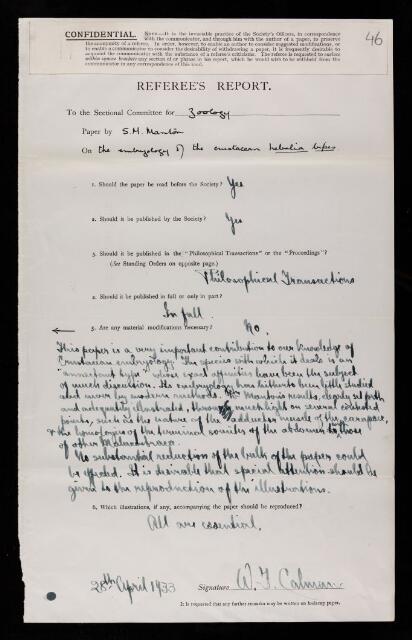 CONFIDENTIAL.
NOTE.—It is the invariable practice of the Society's Officers, in correspondence
with the communicator, and through him with the author of a paper, to preserve
the anonymity of a referee. In order, however, to enable an author to consider suggested modifications, or
to enable a communicator to consider the desirability of withdrawing a paper, it is frequently desirable to
acquaint the communicator with the substance of a referee's criticisms. The referee is requested to enclose
within square brackets any section of or phrase in his report, which he would wish to be withheld from the
communicator in any correspondence of this kind.
46
REFEREE'S REPORT.
To the Sectional Committee for Zoology
Paper by S. M. Manton
On the embryology of the crustacean Nebalia bipes.
1. Should the paper be read before the Society? Yes
2. Should it be published by the Society? Yes
3. Should it be published in the "Philosophical Transactions" or the "Proceedings"?
(See Standing Orders on opposite page.)
Philosophical Transactions
4. Should it be published in full or only in part?
In full.
5. Are any material modifications necessary? No.
This paper is a very important contribution to our knowledge of
Crustacean embryology. The species with which it deals is an
"annectant type" whose exact affinities have been the subject
of much discussion. Its embryology has hitherto been little studied
and never by modern methods. Miss Manton's results, clearly set forth
and adequately illustrated, throw much light on several
points, such as the nature of the adductor muscle of the carapace,
& the homologies of the terminal somites of the abdomen to those
of other Malacostraca.
No substantial reduction of the bulk of the paper could
be effected. It is desirable that special attention should be
given to the reproduction of the illustrations.
6. Which illustrations, if any, accompanying the paper should be reproduced?
All are essential.
28th April 1933
Signature W. T. Calman
It is requested that any further remarks may be written on foolscap paper.